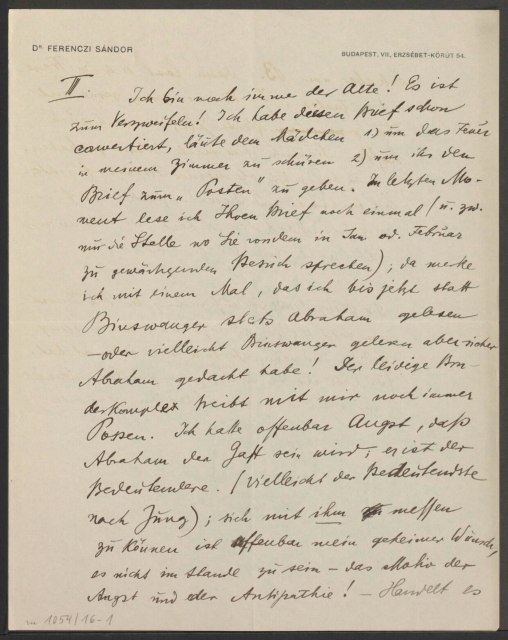 Dr. FERENCZI SÁNDOR
BUDAPEST, VII, ERZSÉBET-KÖRÚT 54.
III.
Ich bin noch immer der Alte! Es ist
zum Verzweifeln! Ich habe diesen Brief schon
couvertiert, läute dem Mädchen 1) um das Feuer
in meinem Zimmer zu schüren 2) um ihr den
Brief zum „Posten“ zu geben. Im letzten Mo-
ment lese ich Ihren Brief noch einmal (u. zw.
nur die Stelle wo Sie von dem in Jan od. Februar
zu gewärtigenden Besuch sprechen); da merke
ich mit einem Mal, das ich bis jetzt statt
Binswanger stets Abraham gelesen
– oder vielleicht Binswanger gelesen aber sicher
Abraham gedacht habe! Der leidige Bru-
derkomplex treibt mit mir noch immer
Possen. Ich hatte offenbar Angst, daß
Abraham der Gast sein wird; er ist der
Bedeutendere. (Vielleicht der Bedeutendste
nach Jung); sich mit ihm messen
zu können ist offenbar mein geheimer Wunsch,
es nicht im Stande zu sein – das Motiv der
Angst und der Antipathie! – Handelt es
1054/16-1